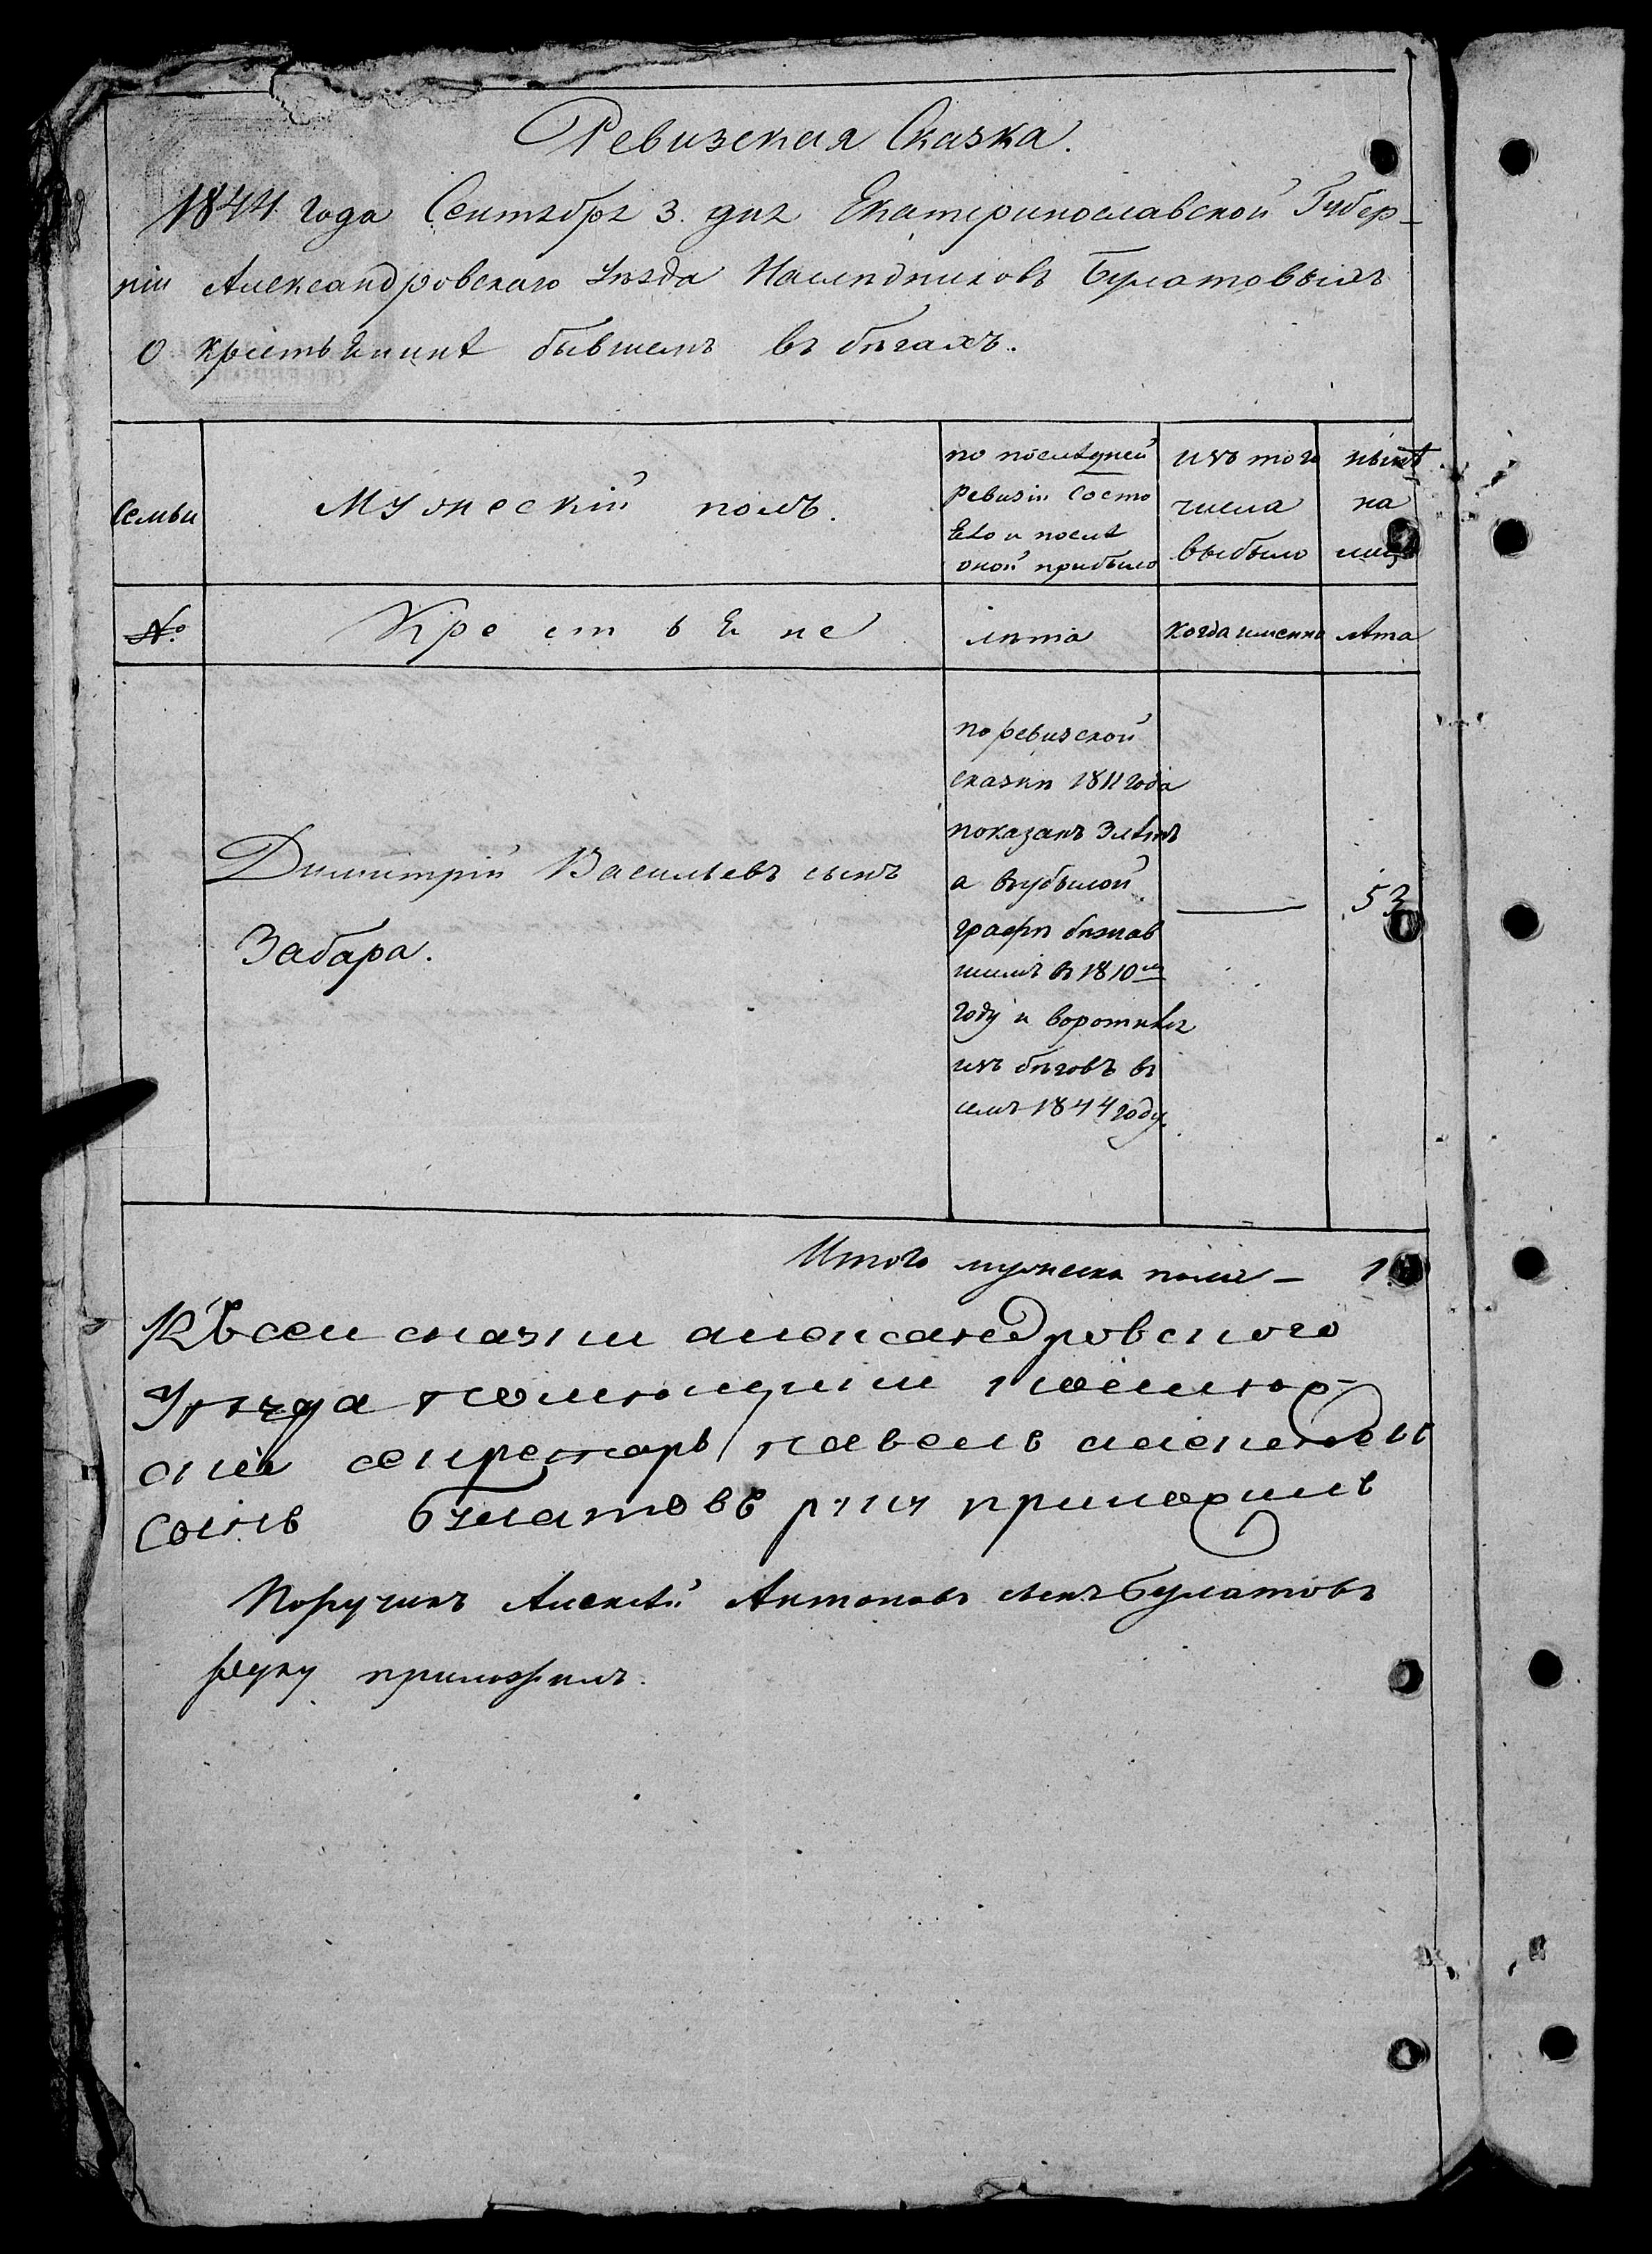 Ревизская Сказка.
1844 года Сентября 3. дня Екатеринославской Губер-
ніи Александровскаго Уѣзда Наслѣдниковъ Булатовыхъ
О крестьянинѣ бывшемъ въ бѣгахъ.
Семьи
Мужескій полъ.
по послѣдней
Ревизіи Состо
яло и послѣ
оной прибыло
изъ того
числа
выбыло
нынѣ
на
лицо
№
Крестьяне
лѣта
когда именно
лѣта
Димитрій Васильевъ сынъ
Забара.
по ревизской
сказки 1811 года
показанъ 3 лѣтъ
а въ убылой
графѣ бѣжав
шимъ въ 1810м
году и воротился
изъ бѣговъ въ
семъ 1844 году.
53
Итого мужеска пола — 1.
Къ сей сказки александровского
Уѣзда
секретарь павелъ
Сынъ булатовъ руку приложилъ
Поручикъ Алексѣй Антоновъ сынъ Булатовъ
руку приложилъ.